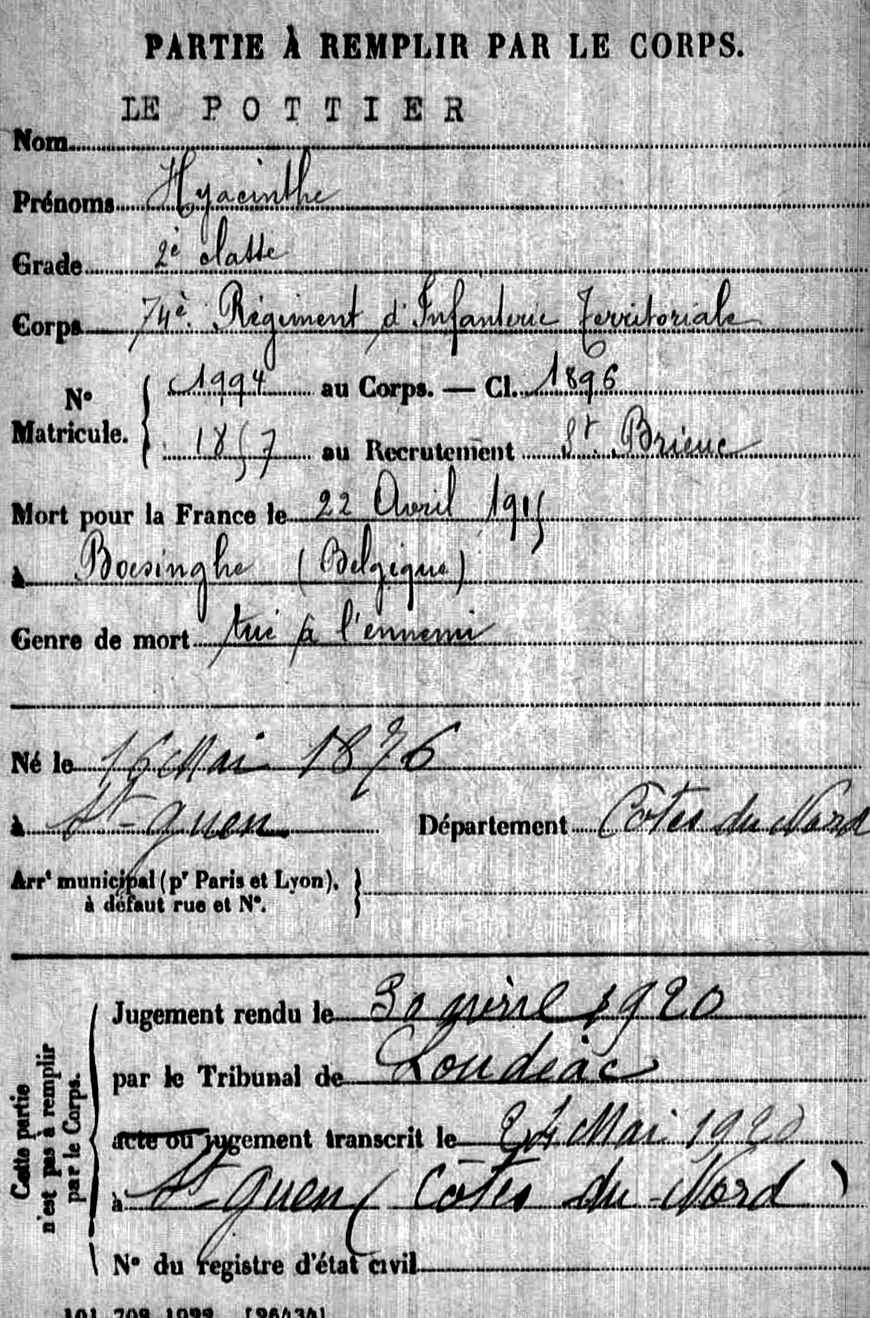 PARTIE À REMPLIR PAR LE CORPS.
LE POTTIER
Nom
Prénoms Hyacinthe
Grade 2è classe
Corps 74è Régiment d'Infanterie Territoriale
N° Matricule. { 1994 au Corps. — Cl. 1896
1857 au Recrutement St. Brieuc
Mort pour la France le 22 Avril 1915
à Boesinghe (Belgique)
Genre de mort tué à l'ennemi
Né le 16 Mai 1876
à St-guen Département Côtes du Nord
Arrt municipal (pr Paris et Lyon),
à défaut rue et N°.
Cette partie
n'est pas à remplir
par le Corps.
Jugement rendu le 30 avril 1920
par le Tribunal de Loudéac
acte ou jugement transcrit le 24 Mai 1920
à St-guen (Côtes du Nord)
N° du registre d'état civil
101.708.1922. [26434]